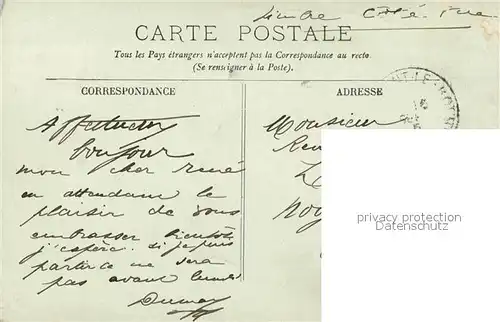 Timbre Côté Vue
CARTE POSTALE
Tous les Pays étrangers n'acceptent pas la Correspondance au recto.
(Se renseigner à la Poste).
CORRESPONDANCE
ADRESSE
Affectueux
bonjour
mon cher René
en attendant le
plaisir de vous
embrasser bientôt
j'espère. si je puis
partir ce ne sera
pas avant lundi
Monsieur
Ren
privacy protection